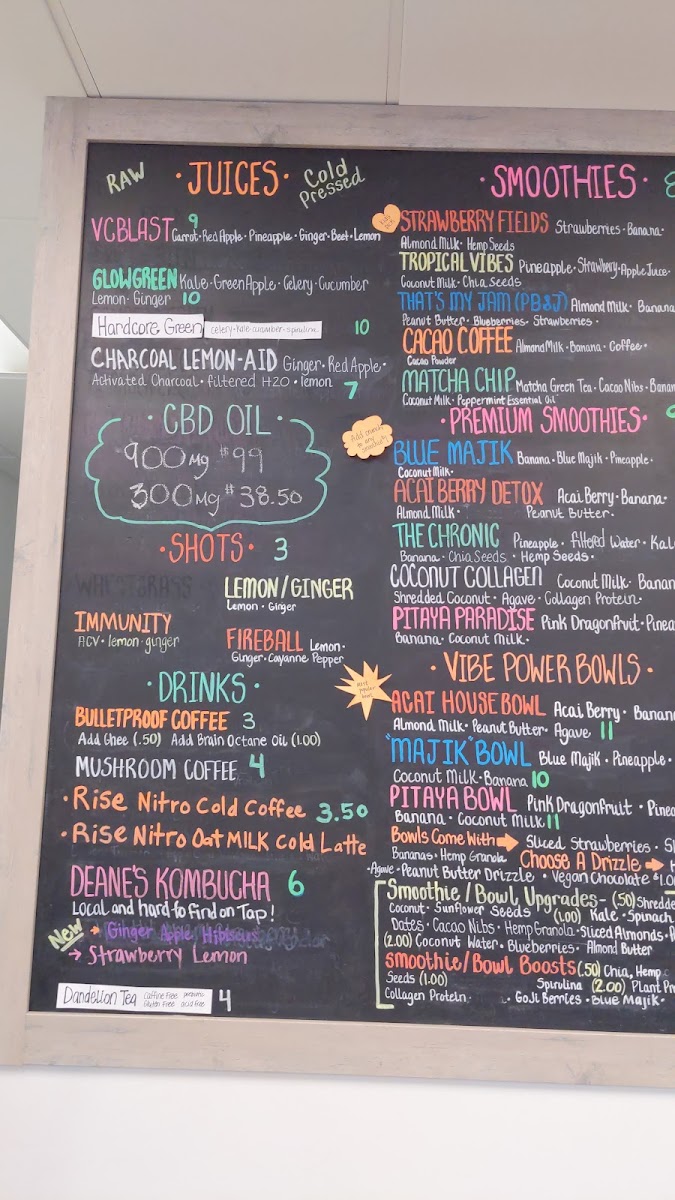 RAW · JUICES · Cold Pressed
VC BLAST 9 Carrot · Red Apple · Pineapple · Ginger · Beet · Lemon
GLOWGREEN Kale · Green Apple · Celery · Cucumber
Lemon · Ginger 10
Hardcore Green celery · kale · cucumber · spirulina 10
CHARCOAL LEMON-AID Ginger · Red Apple ·
Activated Charcoal · filtered H2O · lemon 7
· CBD OIL ·
900 Mg $99
300 Mg $38.50
· SHOTS · 3
WHEATGRASS
LEMON/GINGER
Lemon · Ginger
IMMUNITY
ACV · lemon · ginger
FIREBALL Lemon ·
Ginger · Cayanne Pepper
· DRINKS ·
BULLETPROOF COFFEE 3
Add Ghee (.50) Add Brain Octane Oil (1.00)
MUSHROOM COFFEE 4
· Rise Nitro Cold Coffee 3.50
· Rise Nitro Oat MILK Cold Latte
DEANE'S KOMBUCHA 6
Local and hard to find on Tap!
New → Ginger Apple Hibiscus
→ Strawberry Lemon
Dandelion Tea caffine Free Gluten Free acid free 4
· SMOOTHIES ·
STRAWBERRY FIELDS Strawberries · Banana ·
Almond Milk · Hemp Seeds
TROPICAL VIBES Pineapple · Strawberry · Apple Juice ·
Coconut Milk · Chia Seeds
THAT'S MY JAM (PB&J) Almond Milk · Banana
Peanut Butter · Blueberries · Strawberries ·
CACAO COFFEE Almond Milk · Banana · Coffee ·
Cacao Powder
MATCHA CHIP Matcha Green Tea · Cacao Nibs · Banan
Coconut Milk · Peppermint Essential Oil
· PREMIUM SMOOTHIES ·
Add crunch to any smoothie
BLUE MAJIK Banana · Blue Majik · Pineapple ·
Coconut Milk ·
ACAI BERRY DETOX Acai Berry · Banana ·
Almond Milk · Peanut Butter ·
THE CHRONIC Pineapple · filtered Water · Kal
Banana · Chia Seeds · Hemp Seeds ·
COCONUT COLLAGEN Coconut Milk · Banan
Shredded Coconut · Agave · Collagen Protein ·
PITAYA PARADISE Pink Dragonfruit · Pinea
Banana · Coconut Milk ·
· VIBE POWER BOWLS ·
most popular bowl
ACAI HOUSE BOWL Acai Berry · Banan
Almond Milk · Peanut Butter · Agave 11
"MAJIK" BOWL Blue Majik · Pineapple ·
Coconut Milk · Banana 10
PITAYA BOWL Pink Dragonfruit · Pinea
Banana · Coconut Milk 11
Bowls Come With → Sliced Strawberries · Sl
Bananas · Hemp Granola Choose A Drizzle → H
· Agave · Peanut Butter Drizzle · Vegan Chocolate $1.0
Smoothie / Bowl Upgrades - (.50) Shredde
Coconut · Sunflower Seeds (1.00) Kale · Spinach
Dates · Cacao Nibs · Hemp Granola · Sliced Almonds · A
(2.00) Coconut Water · Blueberries · Almond Butter
smoothie / Bowl Boosts (.50) Chia, Hemp
Seeds (1.00) Spirulina (2.00) Plant Pr
Collagen Protein · Goji Berries · Blue Majik ·